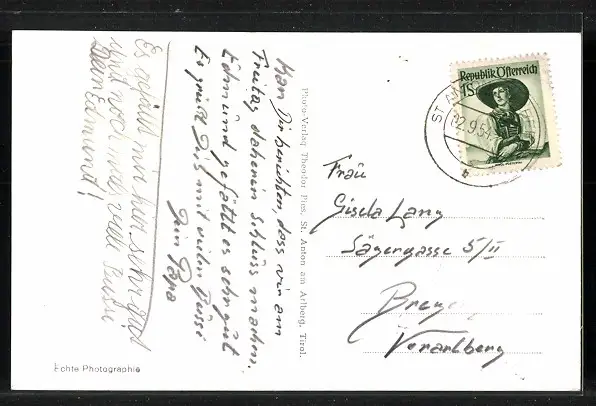 kan Dir berichten, dass wir am
Freitag daherin Schluss machen.
Edmund gefällt es sehr gut
Es grüßt Dich mit vielen Bussi
Dein Papa
Es gefällt mir hier sehr gut
und noch viele Bussi
Dein Edmund!
Photo-Verlag Theodor Pies, St. Anton am Arlberg, Tirol.
Republik Österreich
1S
ST. AN
02.9.5
Frau
Gisela Lang
Sägergasse 5/II
Brege
Vorarlberg
Echte Photographie